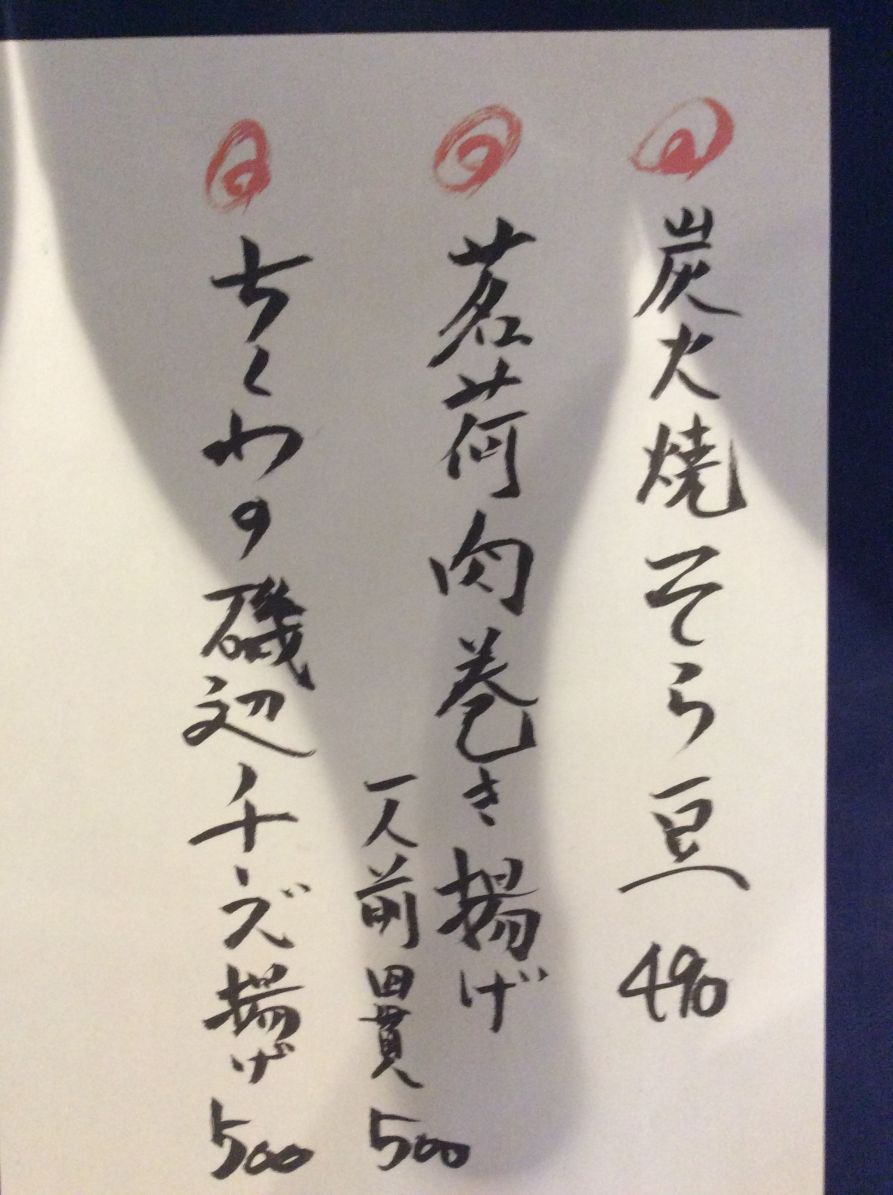 炭火焼そら豆 490
茗荷肉巻き揚げ
一人前四貫 500
ちくわの磯辺チーズ揚げ 500